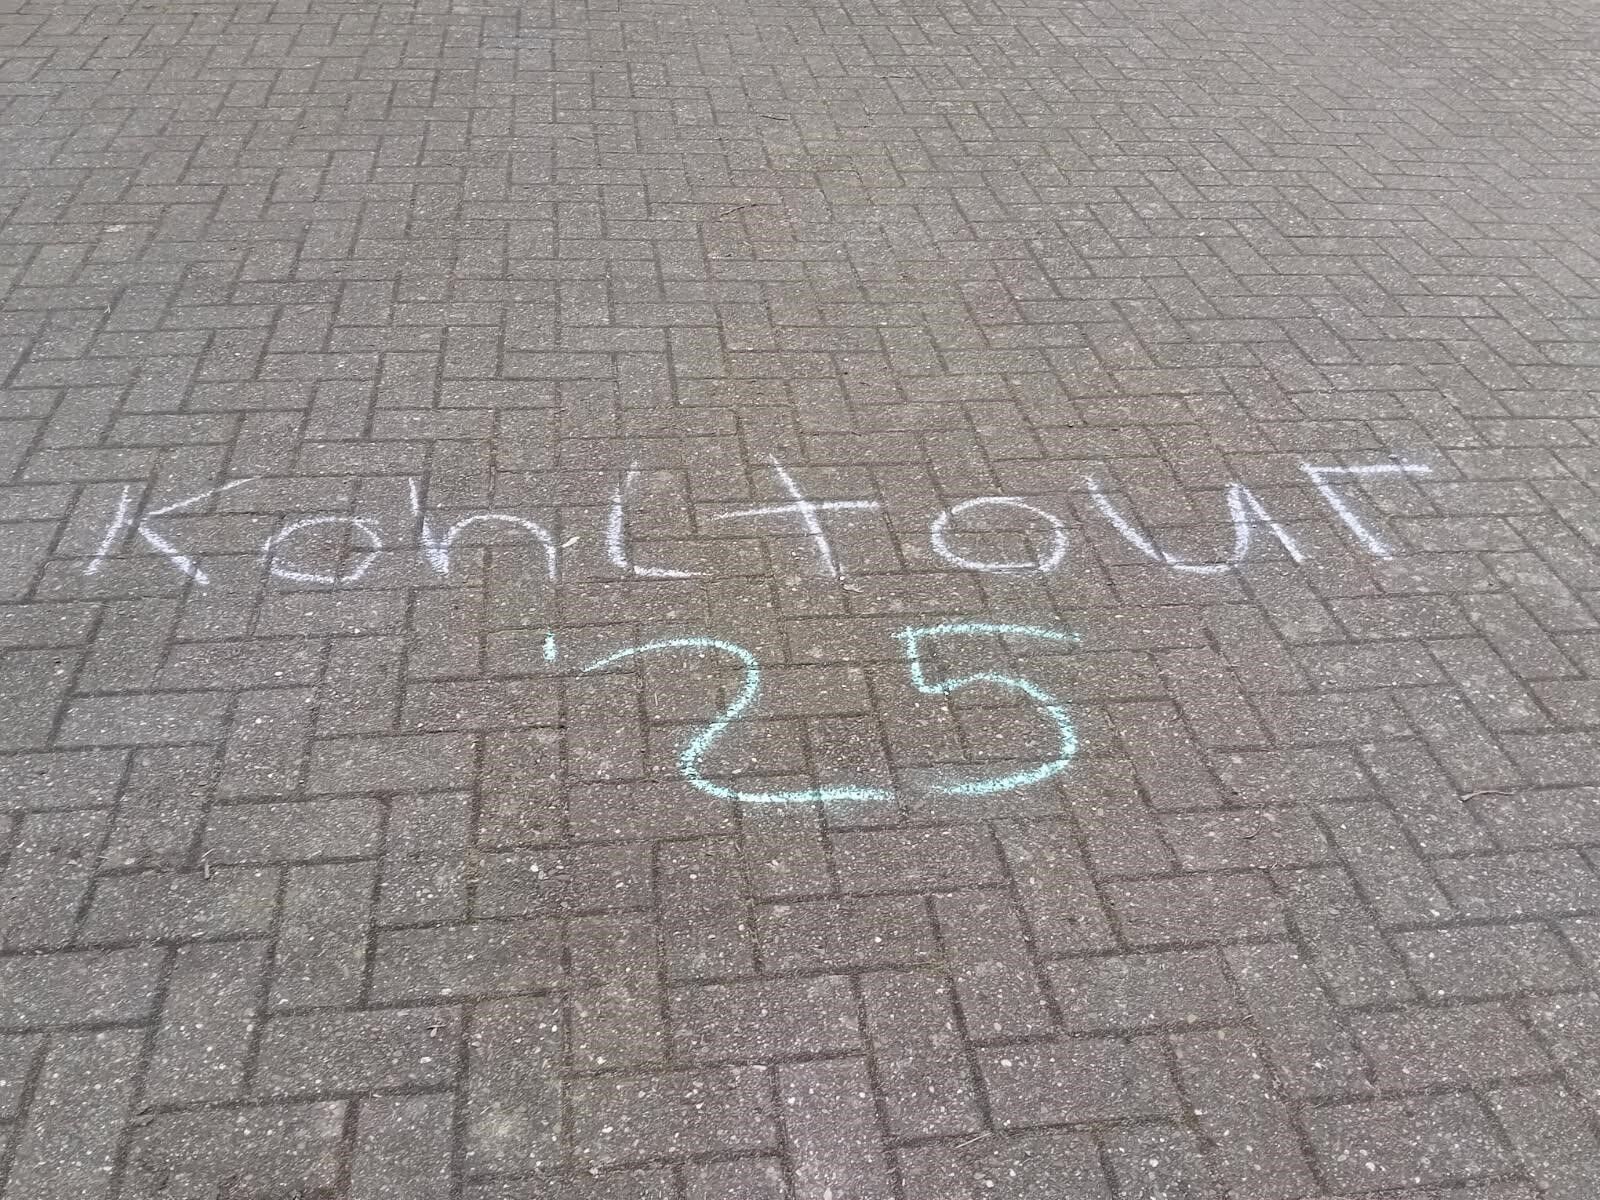 Kohltour
'25